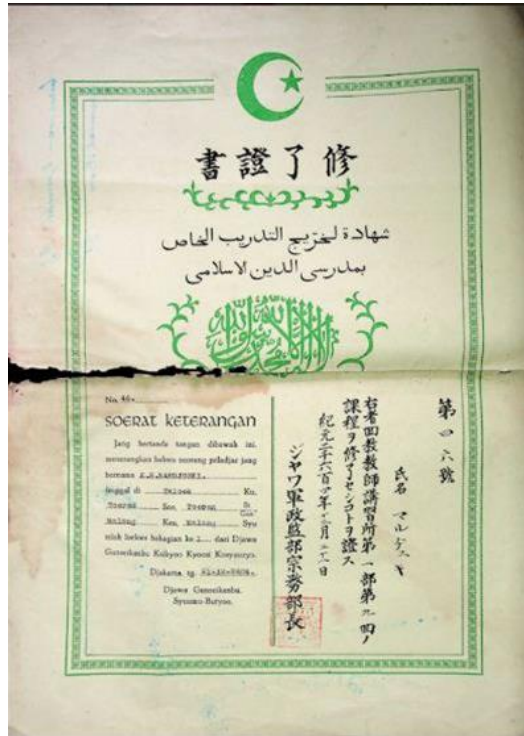 書證了修
شهادة لخريج التدريب الخاص
بمدرسى الدين الاسلامى
No. 46.
SOERAT KETERANGAN
Jang bertanda tangan dibawah ini,
menerangkan bahwa seorang peladjar jang
bernama
tinggal di Ku.
Son.
Malang Ken. Malang Syu
telah bahagian ke 1 dari Djawa
Gunseikanbu Kaikyo Kyoosi Koosyuusyo.
Djakarta, tg.
Djawa Gunseikanbu.
Syuumu-Butyoo.
第四六號
氏名 マルヅキ
右者回教教師講習所第一部第 回ノ
課程ヲ修了セシコトヲ證ス
紀元二千六百四年 月 日
ジャワ軍政監部宗務部長